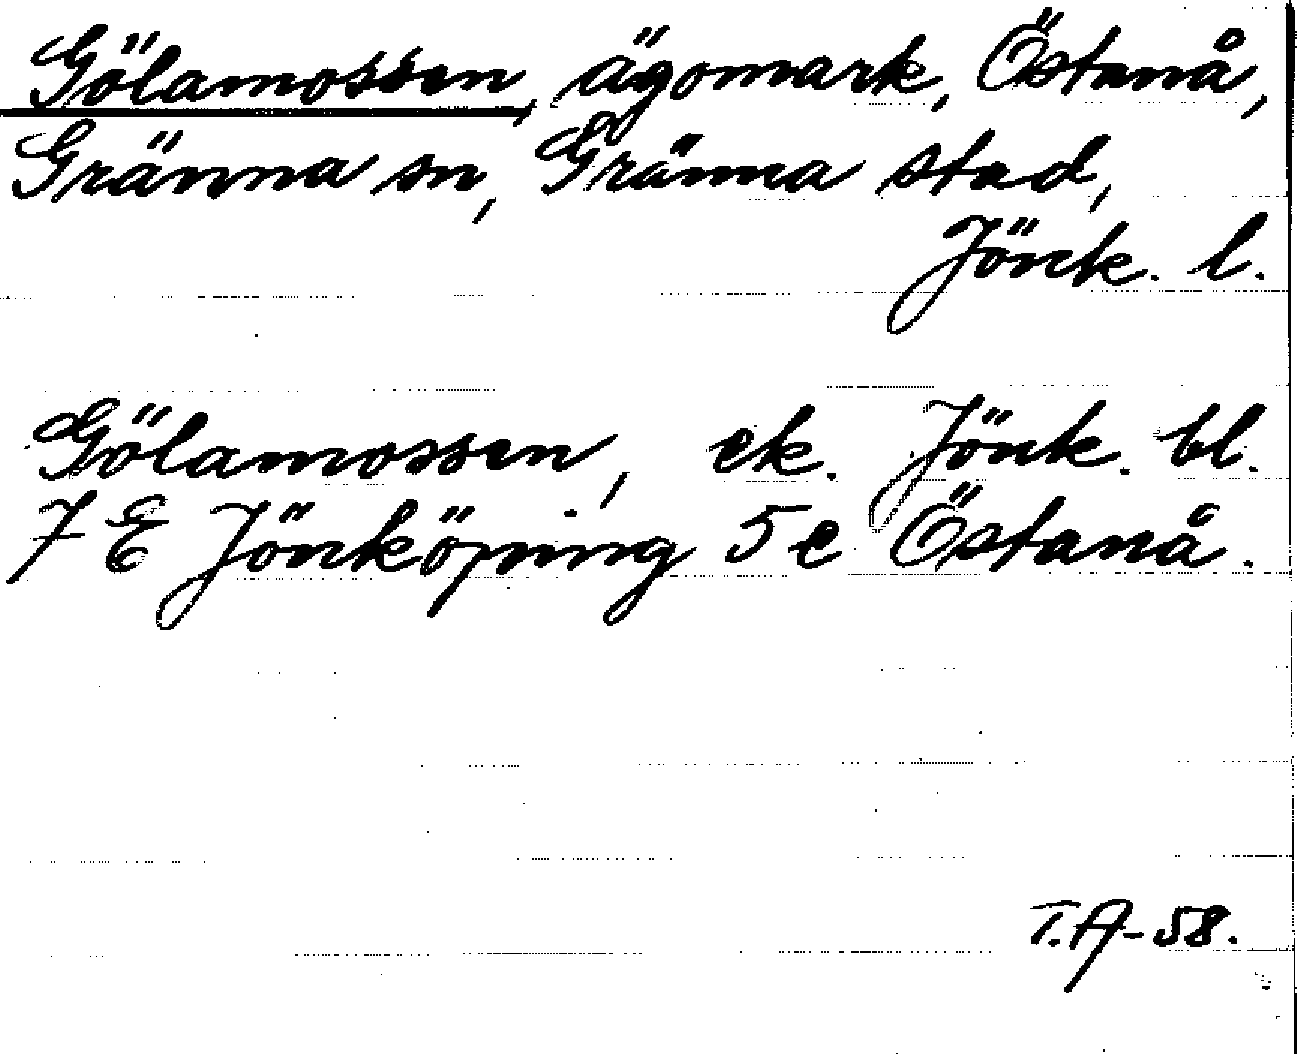 Gölamossen, ägomark, Östanå,
Gränna sn, Gränna stad,
Jönk. l.
Gölamossen, ek. Jönk. bl.
7 E Jönköping 5 e Östanå.
T.A-58.